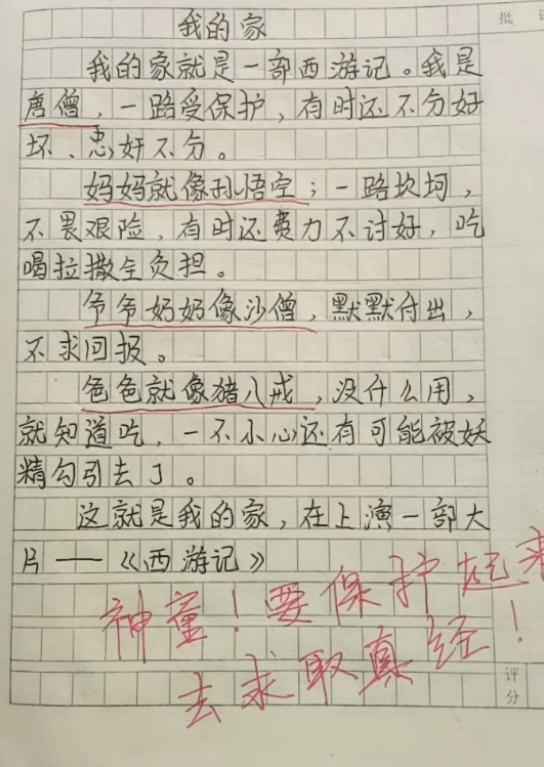 批
我的家
我的家就是一部西游记。我是
唐僧，一路受保护，有时还不分好
坏、忠奸不分。
妈妈就像孙悟空；一路坎坷，
不畏艰险，有时还费力不讨好，吃
喝拉撒全负担。
爷爷奶奶像沙僧，默默付出，
不求回报。
爸爸就像猪八戒，没什么用，
就知道吃，一不小心还有可能被妖
精勾引去了。
这就是我的家，在上演一部大
片——《西游记》
神童！要保护起来
去求取真经！
评分